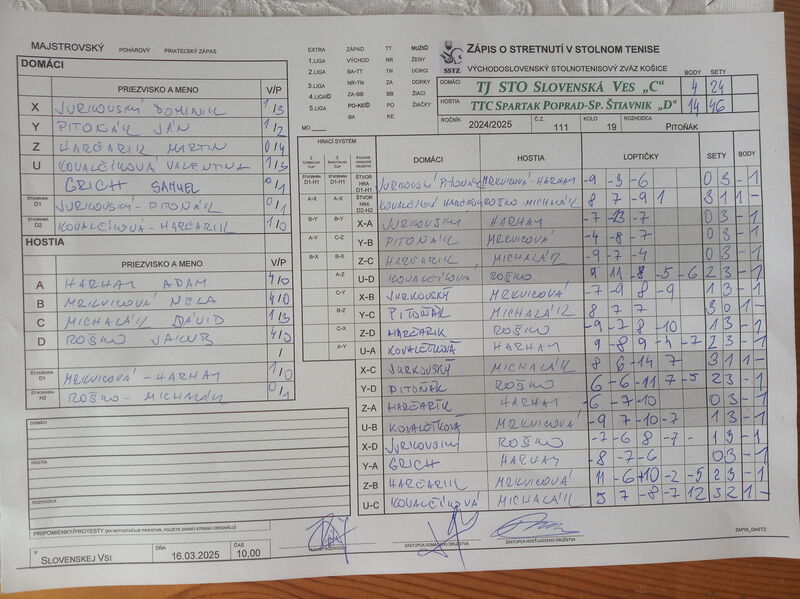 MAJSTROVSKÝ POHÁROVÝ PRIATEĽSKÝ ZÁPAS
DOMÁCI
PRIEZVISKO A MENO V/P
X JURKOVSKÝ DOMINIK 1/3
Y PITOŇÁK JÁN 1/2
Z HARČARIK MARTIN 0/4
U KOVALČÍKOVÁ VALENTINA 1/3
GRICH SAMUEL 0/1
ŠTVORHRA D1 JURKOVSKÝ-PITOŇÁK 0/1
ŠTVORHRA D2 KOVALČÍKOVÁ-HARČARIK 1/0
HOSTIA
PRIEZVISKO A MENO V/P
A HARHAY ADAM 4/0
B MRKVICOVÁ NELA 4/0
C MICHALÁK DÁVID 1/3
D ROŠKO JAKUB 4/0
/
ŠTVORHRA D1 MRKVICOVÁ-HARHAY 1/0
ŠTVORHRA H2 ROŠKO-MICHALÁK 0/1
DOMÁCI
HOSTIA
ROZHODCA
PRIPOMIENKY/PROTESTY (AK NEPOSTAČUJE PRIESTOR, POUŽITE ZADNÚ STRANU ORIGINÁLU)
V SLOVENSKEJ VSI DŇA 16.03.2025 ČAS 10,00
EXTRA ZÁPAD TT MUŽI©
1.LIGA VÝCHOD NR ŽENY
2.LIGA BA-TT TN DORCI
3.LIGA NR-TN ZA DORKY
4.LIGA© ZA-BB BB ŽIACI
5.LIGA PO-KE© PO ŽIAČKY
BA KE
MO
SSTZ
ZÁPIS O STRETNUTÍ V STOLNOM TENISE
VÝCHODOSLOVENSKÝ STOLNOTENISOVÝ ZVÄZ KOŠICE
BODY SETY
DOMÁCI TJ STO SLOVENSKÁ VES „C“ 4 24
HOSTIA TTC SPARTAK POPRAD-SP. ŠTIAVNIK „D“ 14 46
ROČNÍK 2024/2025 Č.Z. 111 KOLO 19 ROZHODCA PITOŇÁK
HRACÍ SYSTÉM DOMÁCI HOSTIA LOPTIČKY SETY BODY
ŠTVORHRA D1-H1 JURKOVSKÝ PITOŇÁK MRKVICOVÁ-HARHAY -9 -3 -6 0 3 -1
ŠTVORHRA D2-H2 KOVALČÍKOVÁ HARČARIK ROŠKO-MICHALÁK 8 7 -9 1 3 1 1 -
X-A JURKOVSKÝ HARHAY -7 -13 -7 0 3 -1
Y-B PITOŇÁK MRKVICOVÁ -4 -8 -7 0 3 -1
Z-C HARČARIK MICHALÁK -9 -7 -4 0 3 -1
U-D KOVALČÍKOVÁ ROŠKO 9 11 -8 -5 -6 2 3 -1
X-B JURKOVSKÝ MRKVICOVÁ -7 -9 8 -9 1 3 -1
Y-C PITOŇÁK MICHALÁK 8 7 7 3 0 1 -
Z-D HARČARIK ROŠKO -9 -7 8 -10 1 3 -1
U-A KOVALČÍKOVÁ HARHAY 9 -8 9 -4 -7 2 3 -1
X-C JURKOVSKÝ MICHALÁK 8 6 -14 7 3 1 1 -
Y-D PITOŇÁK ROŠKO 6 -6 -11 7 -5 2 3 -1
Z-A HARČARIK HARHAY -6 -7 -10 0 3 -1
U-B KOVALČÍKOVÁ MRKVICOVÁ -9 7 -10 -7 1 3 -1
X-D JURKOVSKÝ ROŠKO -7 -6 8 -7 1 3 -1
Y-A GRICH HARHAY -8 -7 -6 0 3 -1
Z-B HARČARIK MRKVICOVÁ 11 -6 10 -2 -5 2 3 -1
U-C KOVALČÍKOVÁ MICHALÁK 5 7 -8 -7 12 3 2 1 -
HLAVNÝ ROZHODCA ZÁSTUPCA DOMÁCEHO DRUŽSTVA ZÁSTUPCA HOSŤUJÚCEHO DRUŽSTVA
ZAPIS_OsSTZ